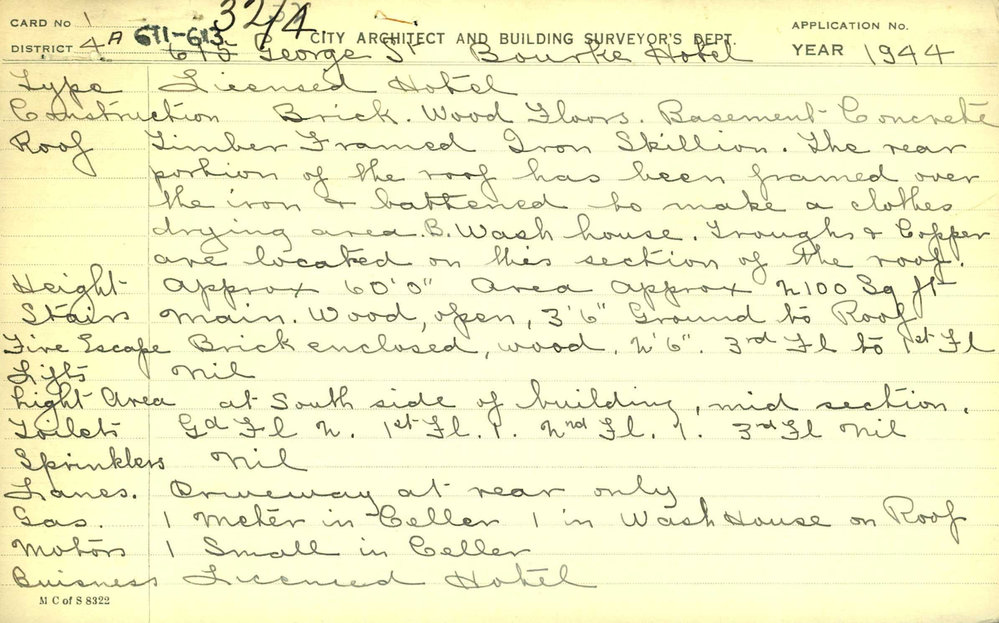 CARD No 1
324A.
DISTRICT 4A 611-613
CITY ARCHITECT AND BUILDING SURVEYOR'S DEPT.
APPLICATION No.
YEAR 1944
George St Bourke Hotel
Type Licensed Hotel
Construction Brick. Wood Floors. Basement Concrete
Roof Timber Framed Iron Skillion. The rear
portion of the roof has been framed over
the iron & battened to make a clothes
drying area. B. Wash house. Troughs & Copper
are located on this section of the roof.
Height Approx 60'0" Area Approx 2100 Sq ft
Stairs Main. Wood, open, 3'6" Ground to Roof
Fire Escape Brick enclosed, wood. 2'6". 3rd Fl to 1st Fl
Lifts Nil
Light Area at South side of building, mid section.
Toilets Gd Fl 2. 1st Fl. 1. 2nd Fl. 1. 3rd Fl Nil
Sprinklers Nil
Lanes. Driveway at rear only
Gas. 1 Meter in Celler 1 in Wash House on Roof
Motors 1 Small in Celler
Buisness Licensed Hotel
M C of S 8322